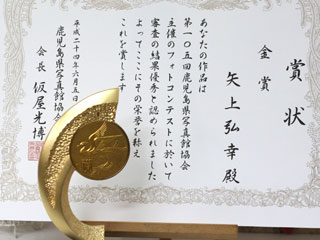 賞状
金賞
矢上弘幸 殿
あなたの作品は
第一〇五回鹿児島県写真館協会
主催のフォトコンテストに於いて
審査の結果優秀と認められました
よってここにその栄誉を称え
これを賞します
平成二十四年六月五日
鹿児島県写真館協会
会長 仮屋光博